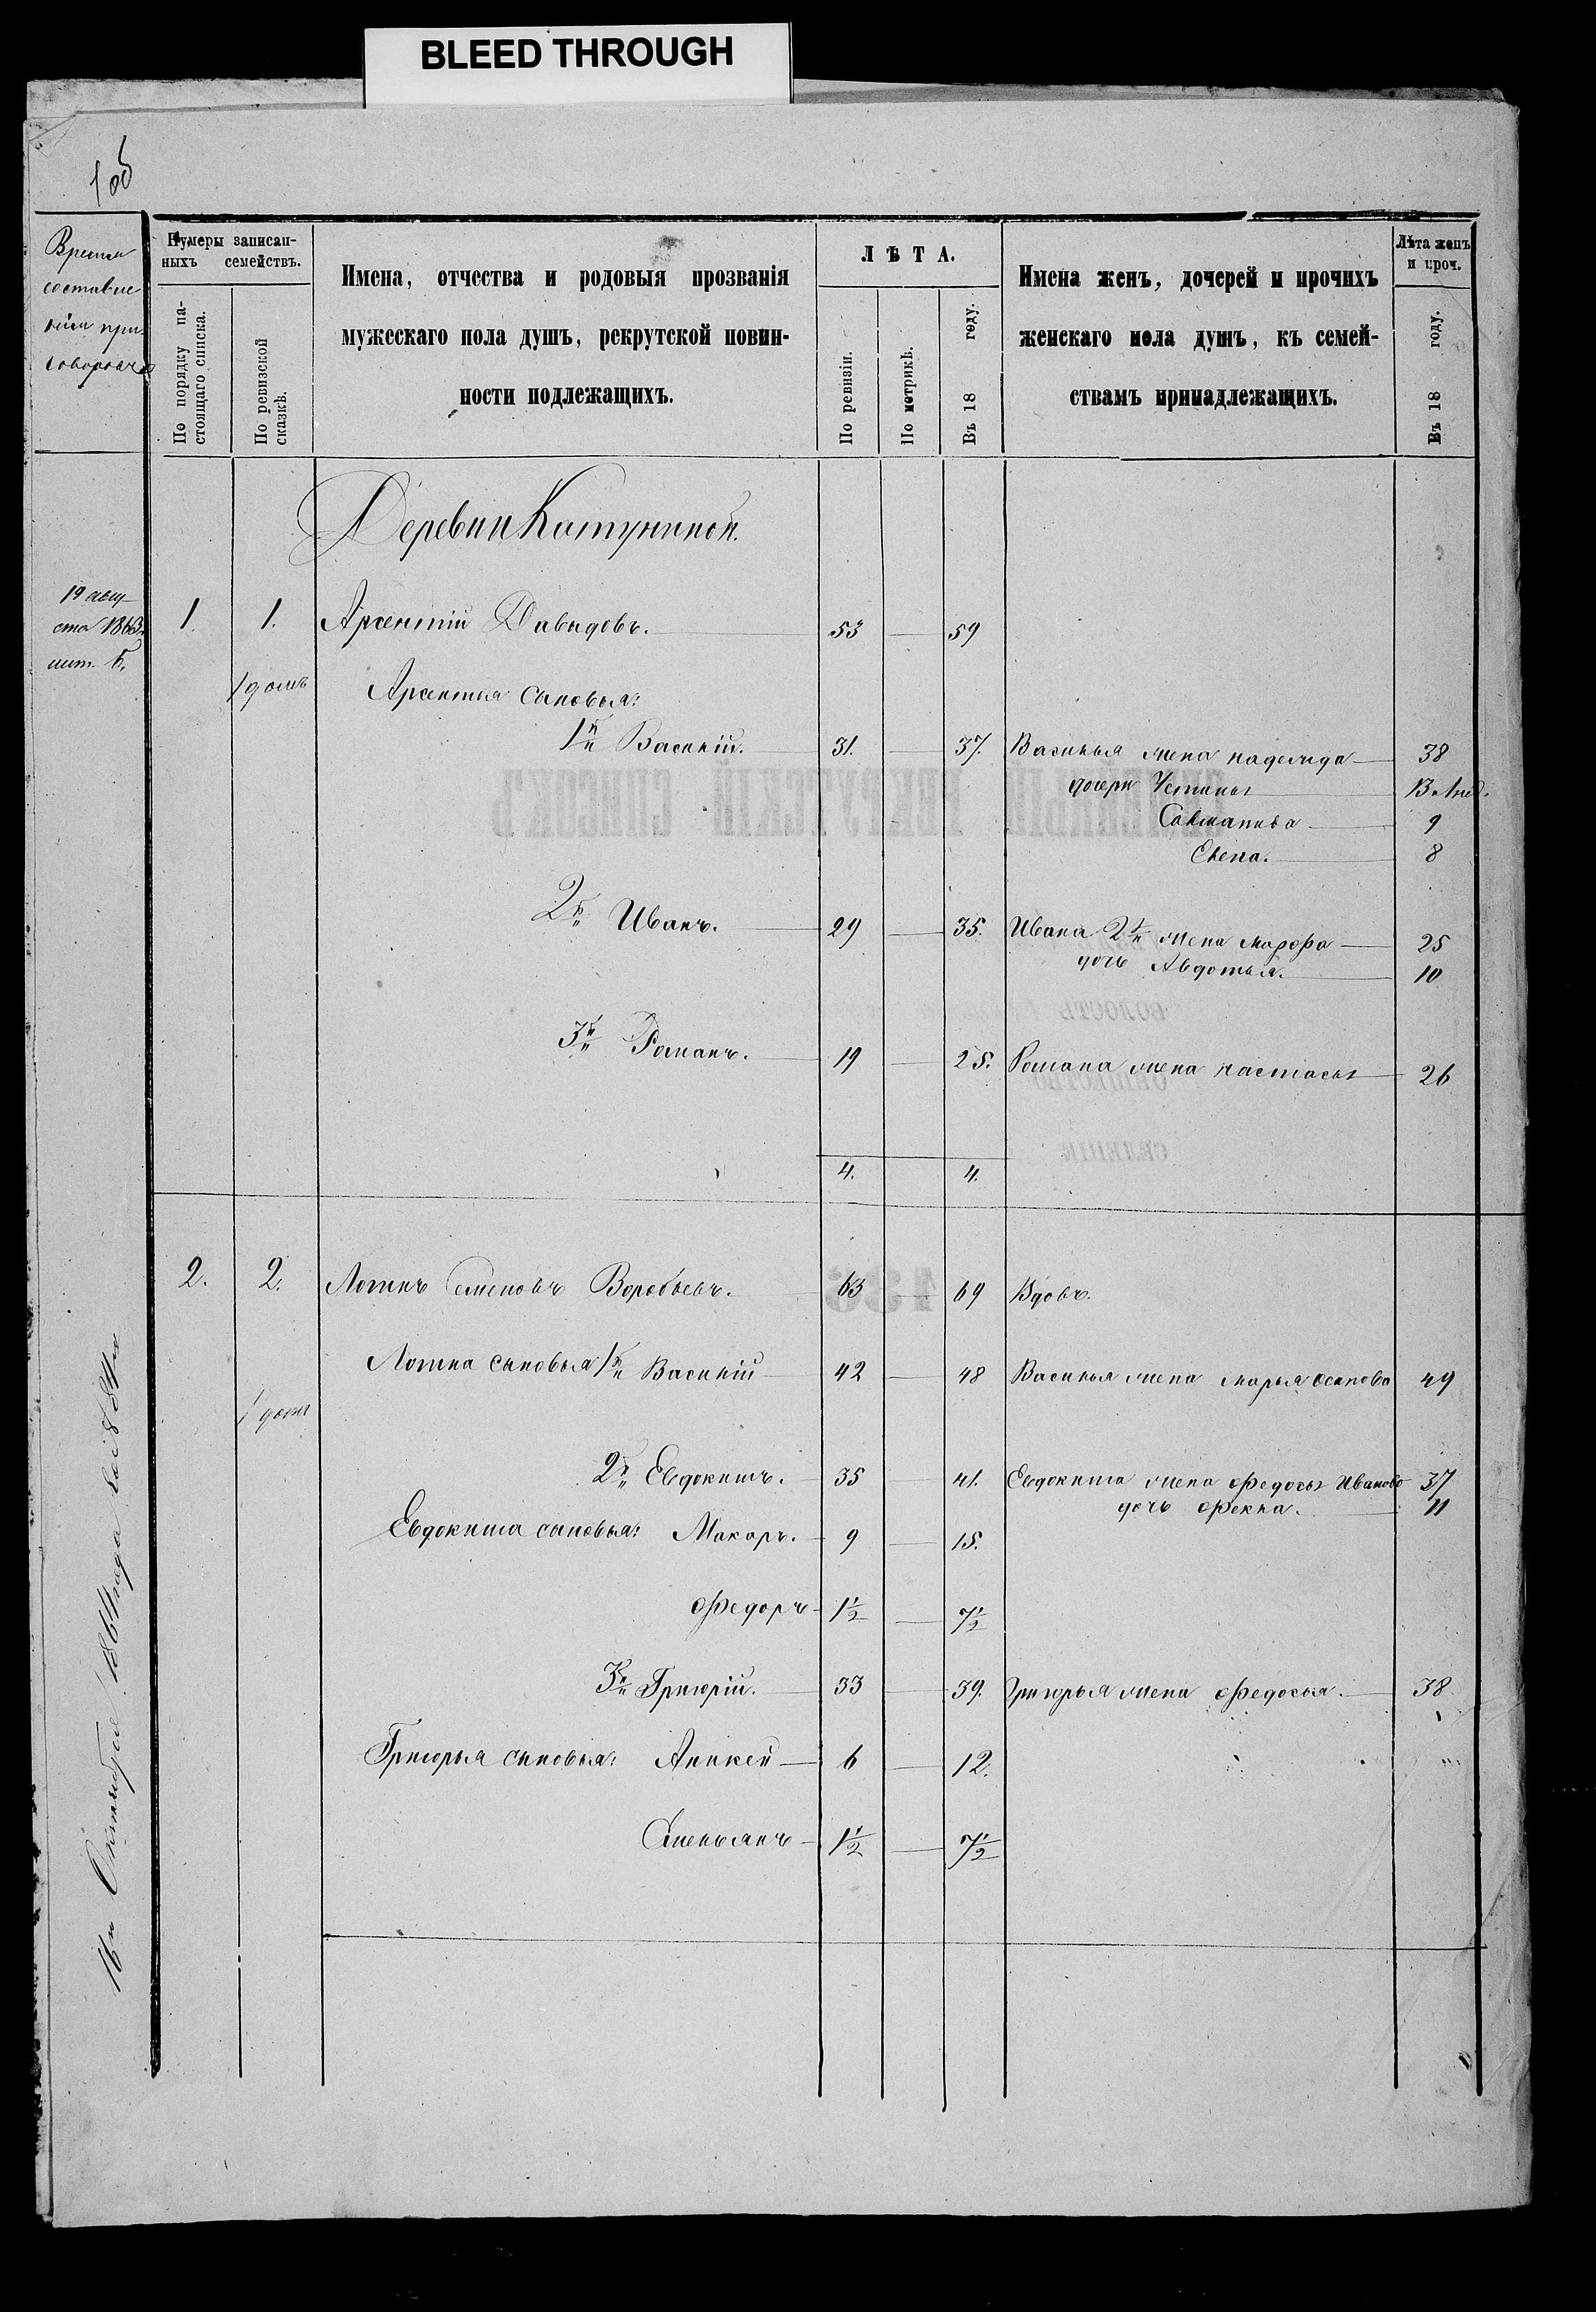 BLEED THROUGH
1об
Время
составле
нія при-
говоровъ
Нумеры записан-
ныхъ семействъ.
По порядку на-
стоящаго списка.
По ревизской
сказкѣ.
Имена, отчества и родовыя прозванія
мужескаго пола душъ, рекрутской повин-
ности подлежащихъ.
ЛѢТА.
По ревизіи.
По метрикѣ.
Въ 18 году.
Имена женъ, дочерей и прочихъ
женскаго пола душъ, къ семей-
ствамъ принадлежащихъ.
Лѣта женъ
и проч.
Въ 18 году.
Деревни Катуниной.
19 авгу
ста 1863.
1. 1. Арсентій Давыдовъ. 53 59
1 домъ Арсентья сыновья:
1й Василій. 31. 37. Василья жена надежда 38
дочери Устинья
9
Елена. 8
2й Иванъ. 29 35. Ивана 2я жена марфа 25
дочь Авдотья. 10
3й Романъ. 19 25. Романа жена настасья 26
4. 4.
2. 2. Логинъ Семеновъ Воробьевъ. 63 69 Вдовъ.
Логина сыновья 1й Василій 42 48 Василья жена марья осипова 49
1 домъ
2й Евдокимъ. 35 41. Евдокима жена федосья Иванова 37
дочь фекла. 11
Евдокима сыновья: Макаръ. 9 15.
федоръ 1½ 7½
3й Григорій. 33 39. Григорья жена федосья. 38
Григорья сыновья: Аникей 6 12.
Емельянъ 1½ 7½
Октября 1864 года